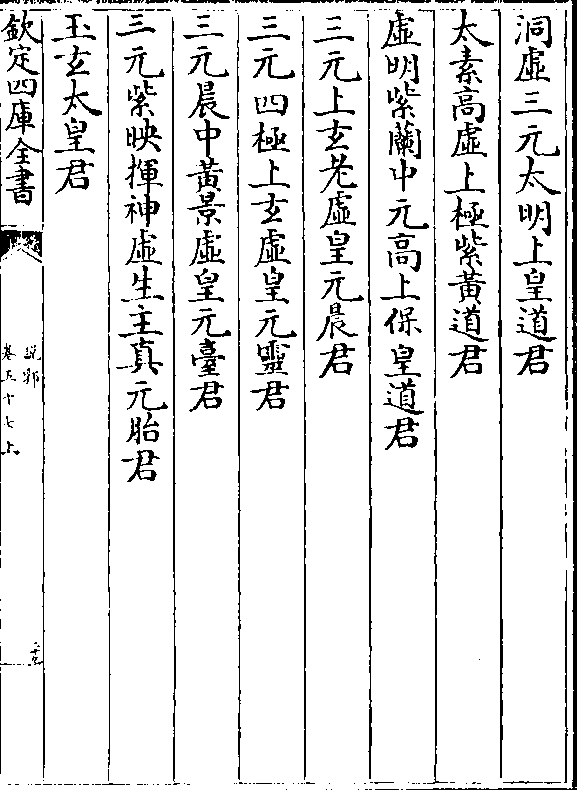 洞虛三元太明上皇道君
太素高虛上極紫黃道君
虛明紫蘭中元高上保皇道君
三元上玄老虛皇元晨君
三元四極上玄虛皇元靈君
三元晨中黃景虛皇元臺君
三元紫映揮神虛生主真元胎君
玉玄太皇君
欽定四庫全書
說郛
卷五十七上
二十九